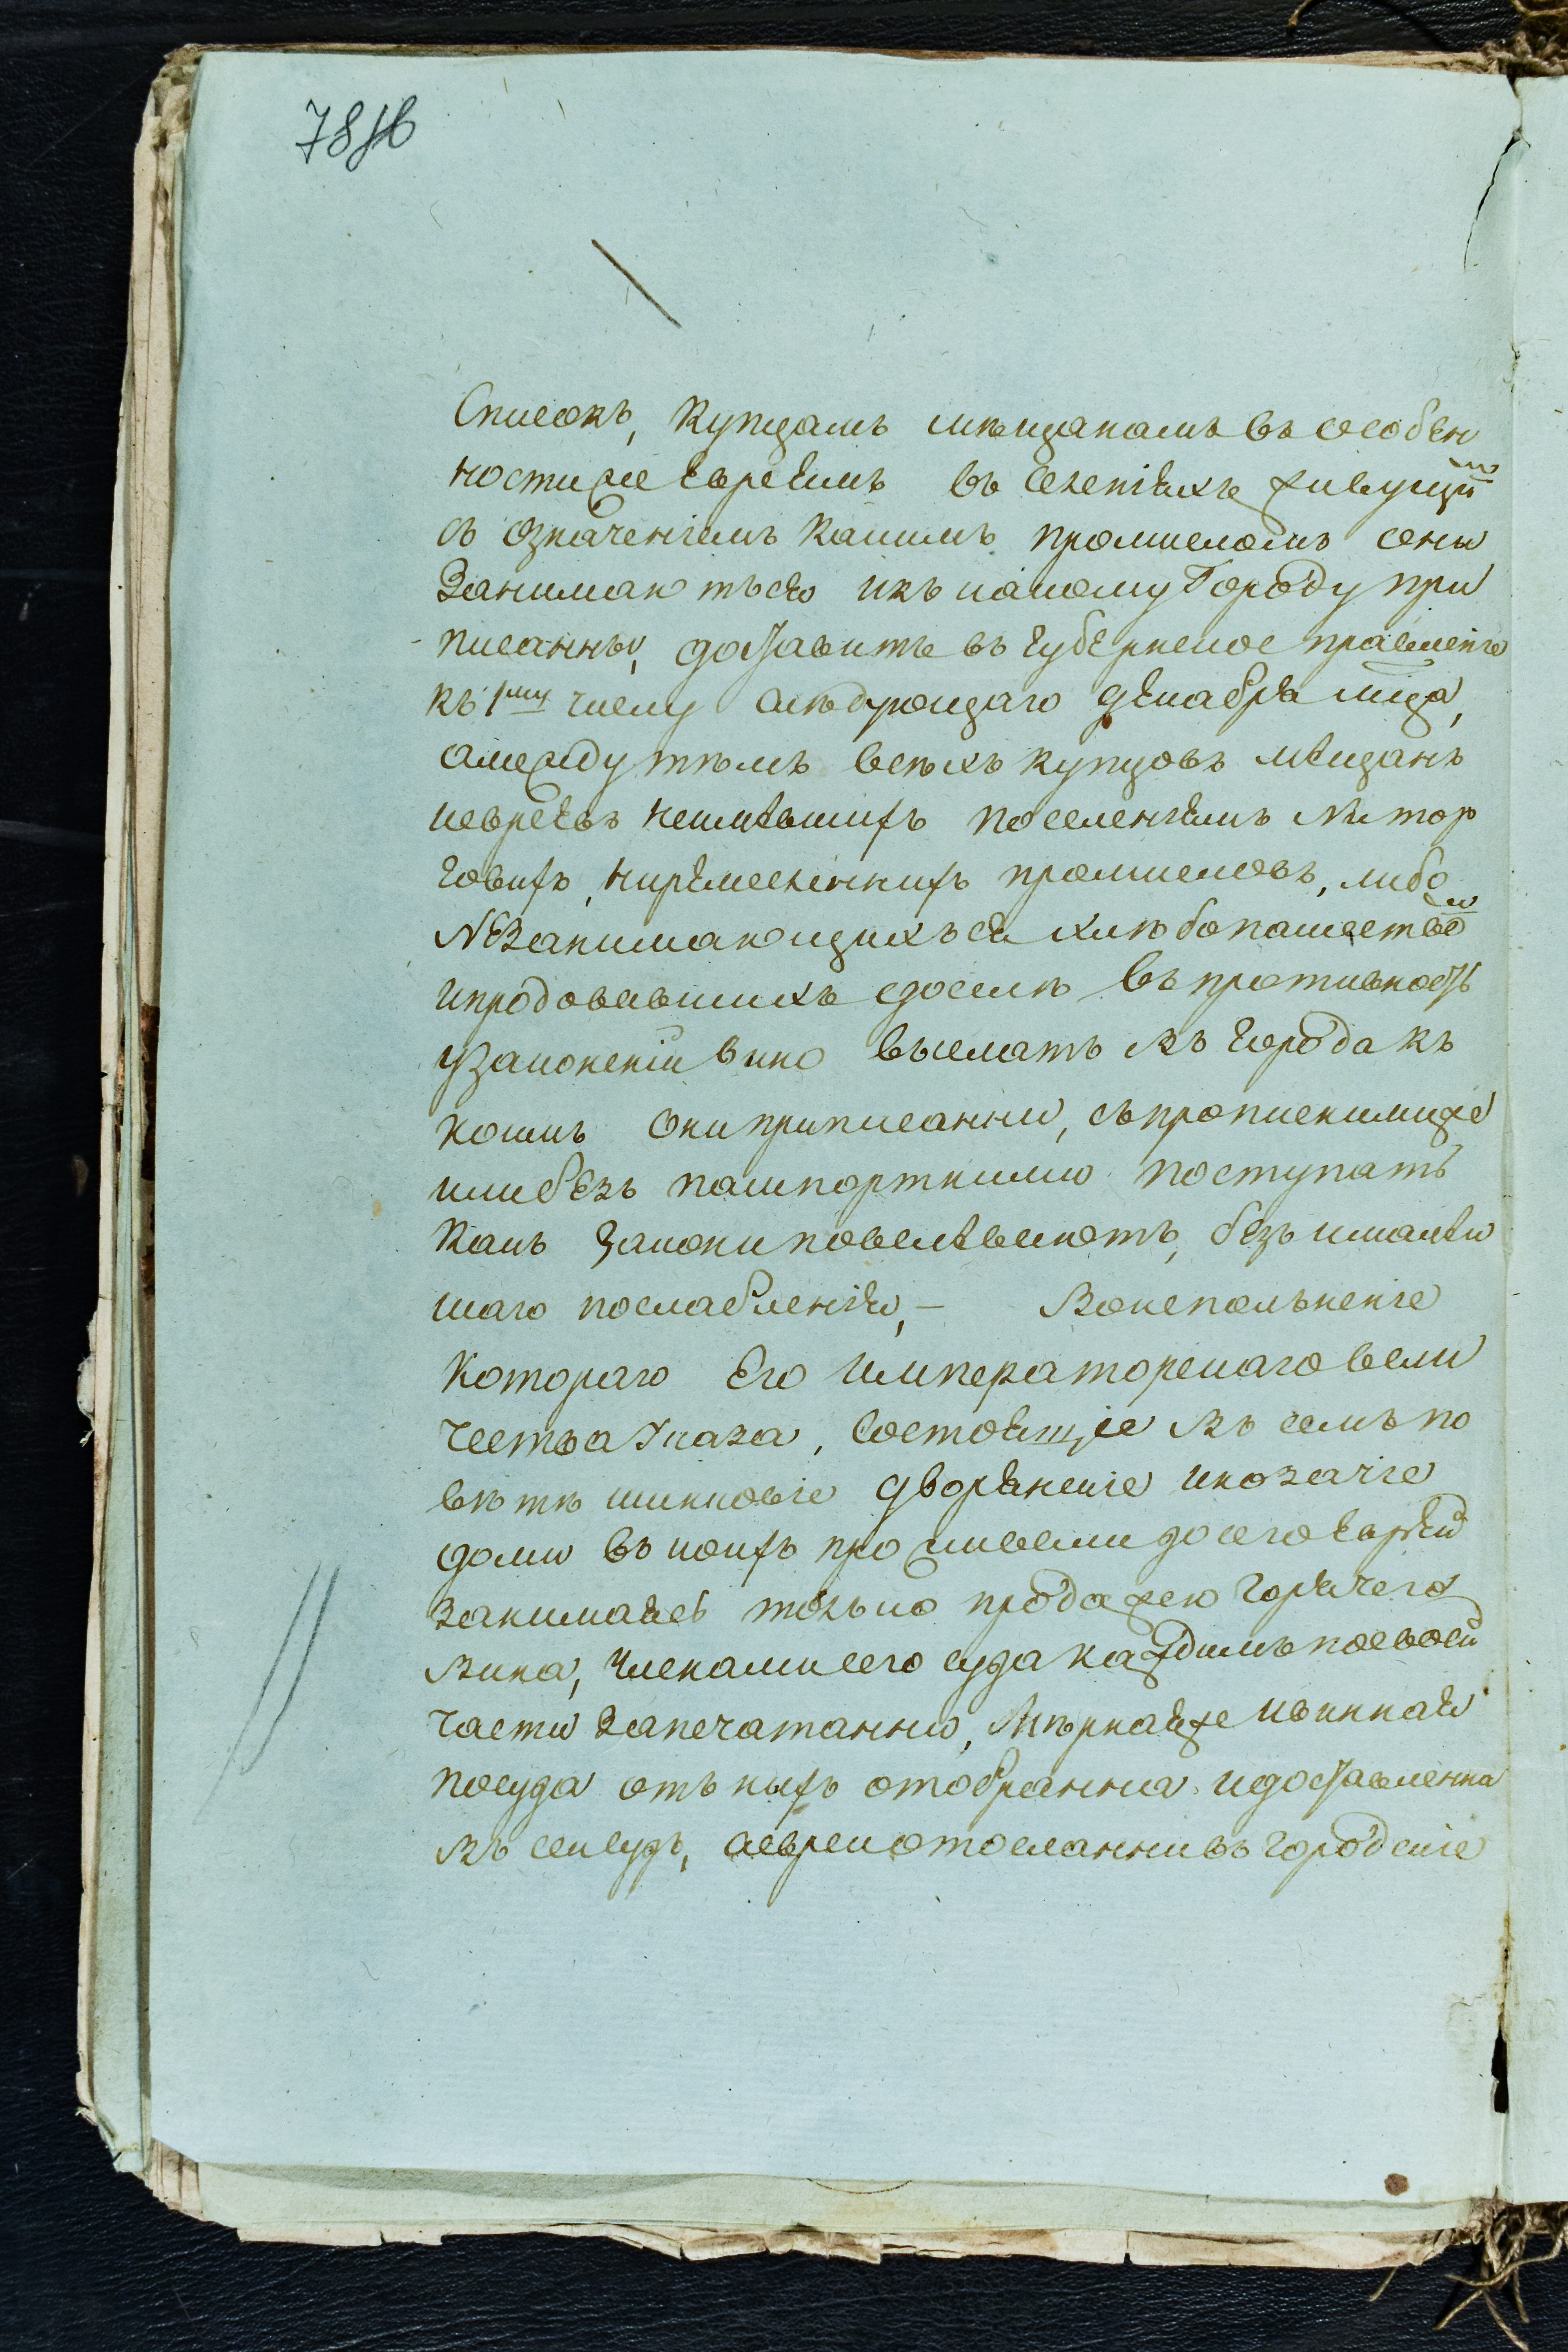 Списокъ, Купцамъ мѣщанамъ въ особен
ности же Евреямъ въ селенияхъ живущимъ
съ означениемъ какимъ промысломъ они
Занимаютъся икъ какому Городу при
писанны, доставить въ Губернское правление
къ 1му числу слѣдующаго Декабря мца,
амежду тѣмъ всѣхъ купцовъ мещанъ
иевреевъ неимѣвшихъ поселениямъ ни тор
говихъ, ниремесленнихъ промысловъ, либо
Незанимающихъся хлѣбопашеством
ипродовавшихъ доселѣ въ противность
узаконений вино выслать въ города къ
коимъ они приписанни, съпрописнимиже
илибезъ пашпортними поступать
какъ Закони повелеваютъ, безъималей
шаго послабления, – Воисполънение
котораго Его императорскаго вели
чества Указа, состоящие въ семъ по
ветѣ шинковие дворянские икозачие
доми въ коихъ проживали досего Евреи
занимаясь толъко продажею горячего
вина, членамисего суда каждимъ посвоей
части запечатанни, Мѣрнаяже ивинная
посуда отъ нихъ отобранна идоставленна
въ сей судъ, аевреи отосланни въ городские